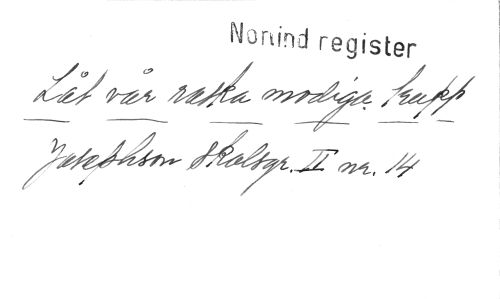 Norlind register
Låt vår raska modiga trupp
Josephson Skolsgr. II nr. 14